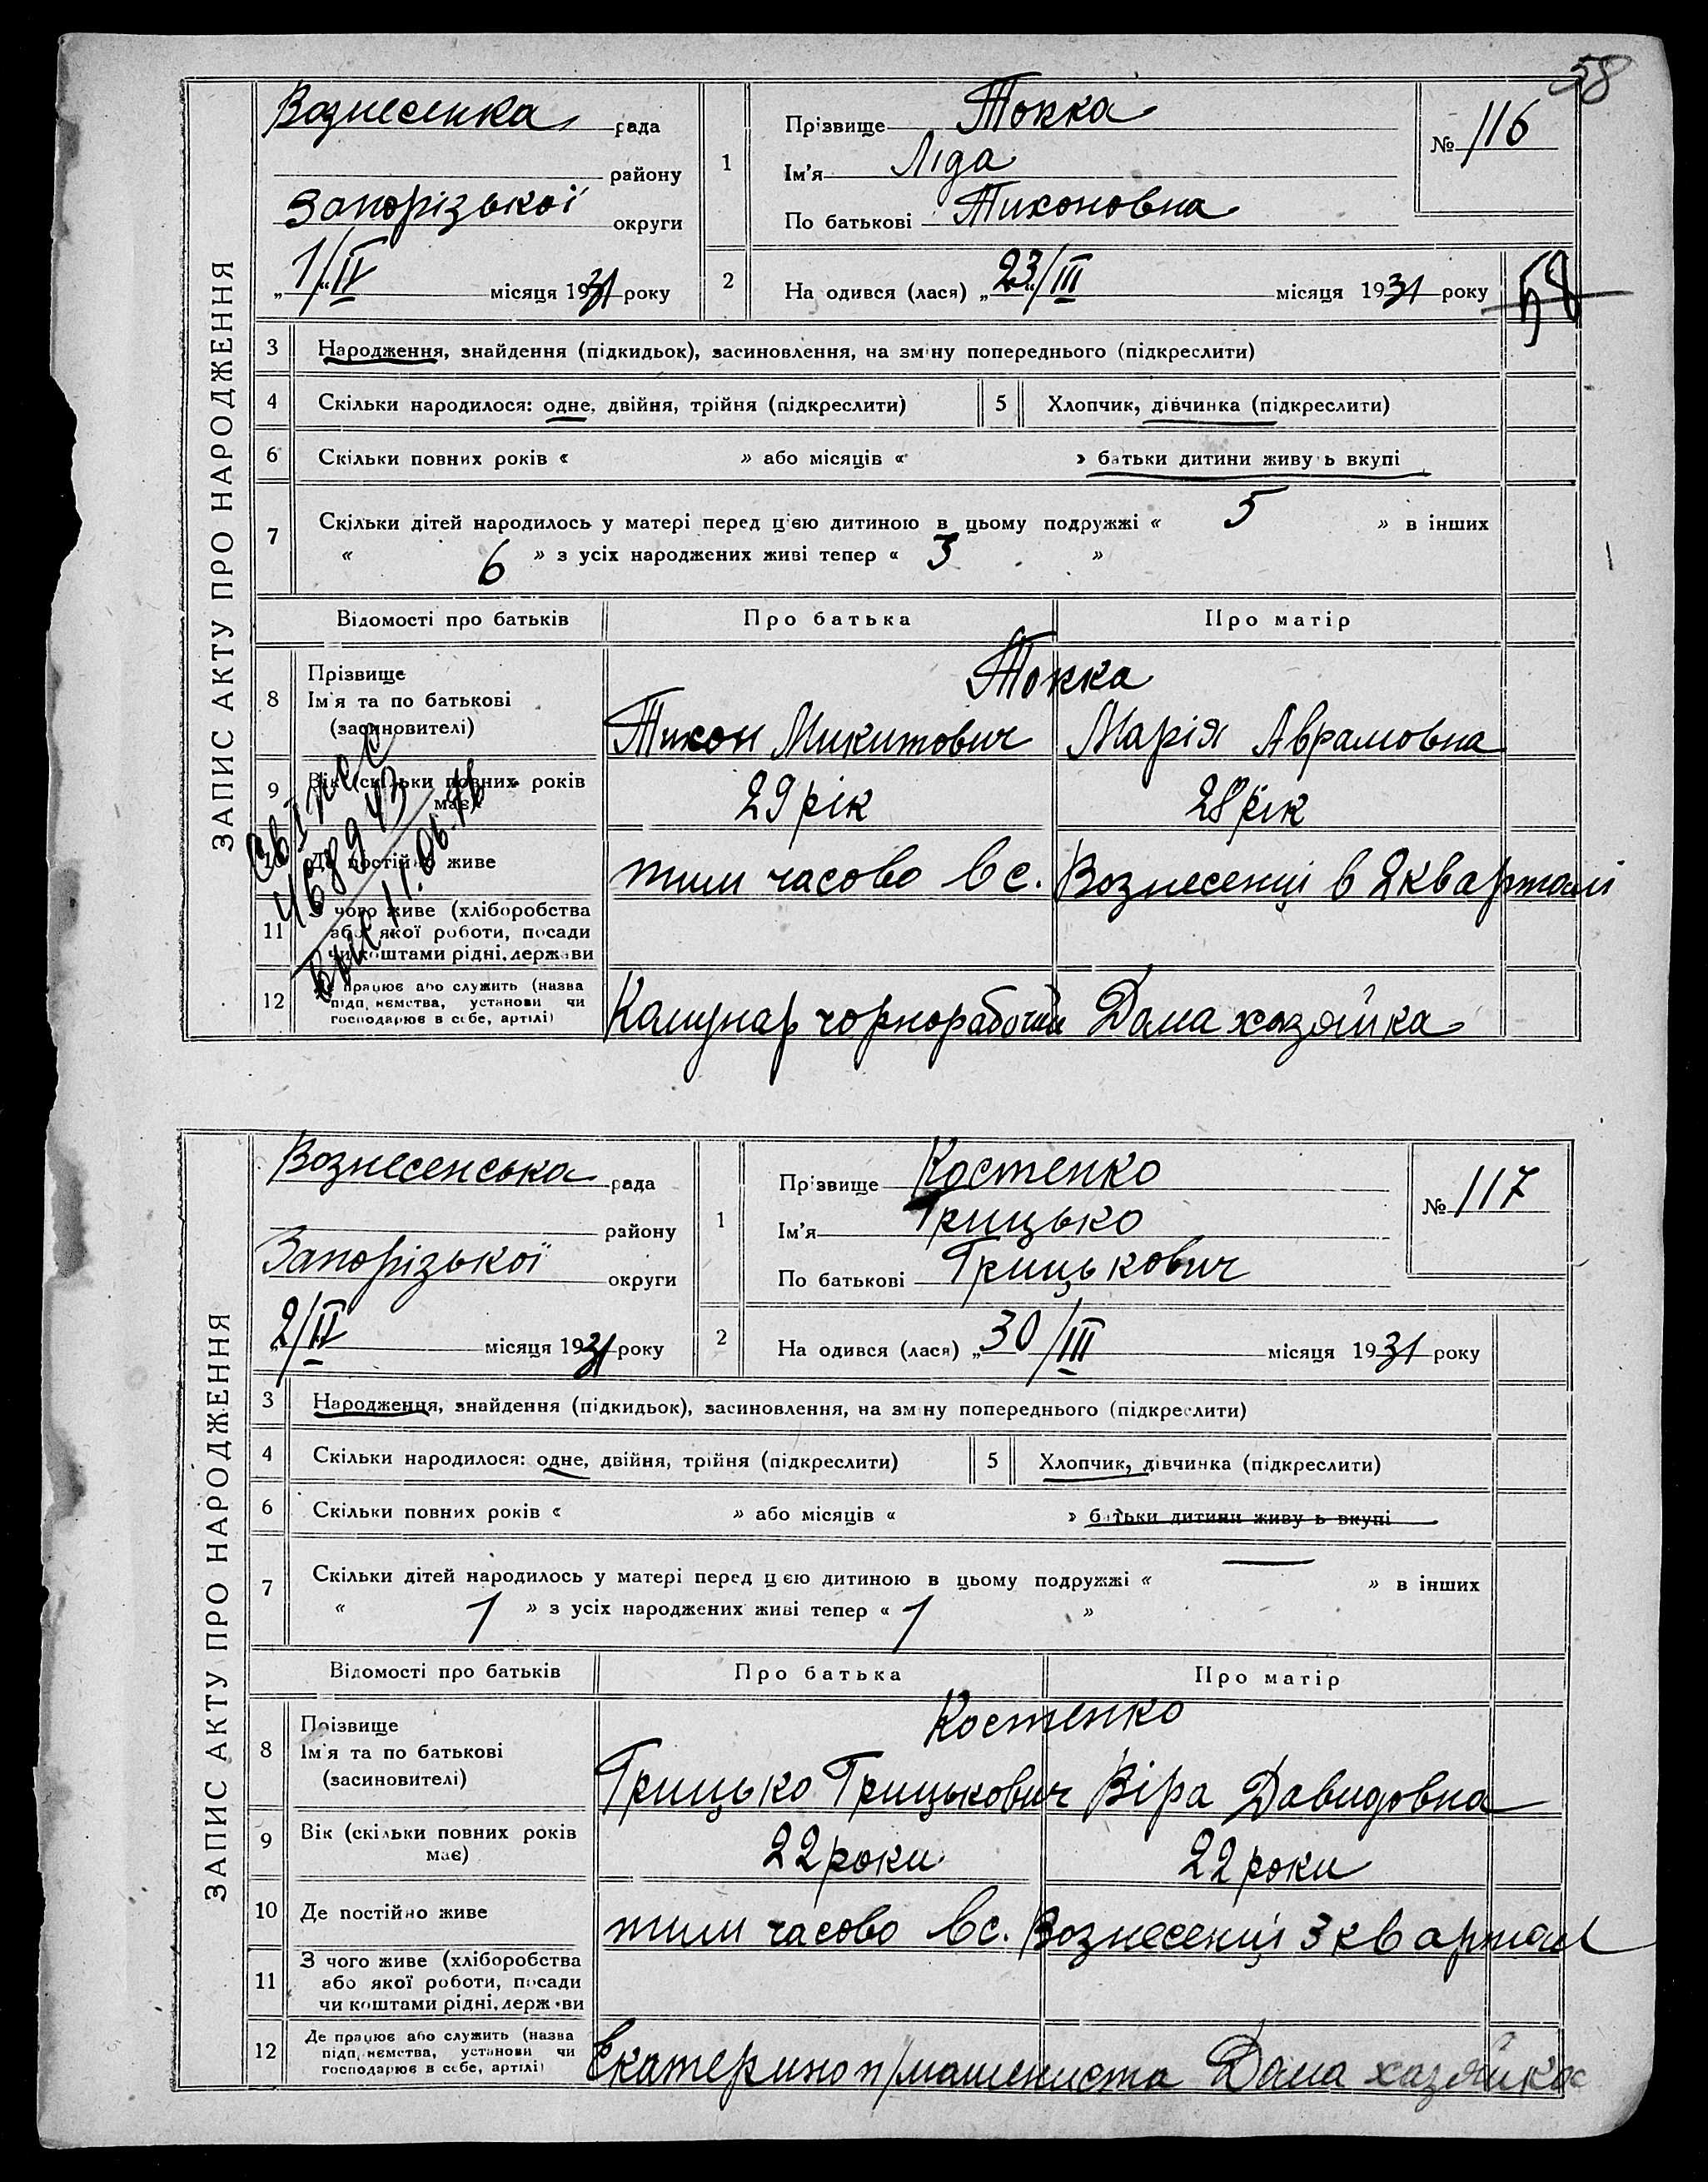 58
ЗАПИС АКТУ ПРО НАРОДЖЕННЯ
Вознесенка рада
району
Запорізької округи
„1/IV“ місяця 1931 року
1
Прізвище Токка
Ім'я Ліда
По батькові Тихоновна
№ 116
2
На одився (лася) „23“/III місяця 1931 року
58
3 Народження, знайдення (підкидьок), засиновлення, на зміну попереднього (підкреслити)
4 Скільки народилося: одне, двійня, трійня (підкреслити) 5 Хлопчик, дівчинка (підкреслити)
6 Скільки повних років « » або місяців « » батьки дитини живу ь вкупі
7 Скільки дітей народилось у матері перед цією дитиною в цьому подружжі « 5 » в інших
« 6 » з усіх народжених живі тепер « 3 »
Відомості про батьків Про батька Про матір
8 Прізвище
Ім'я та по батькові
(засиновителі)
Токка
Тихон Микитович Марія Аврамовна
9 Вік (скільки повних років
має)
29 рік 28 рік
10 Де постійно живе
тим часово в с. Вознесенці в 2 кварталі
11 З чого живе (хліборобства
або якої роботи, посади
чи коштами рідні, держави
12 Де працює або служить (назва
підп, ємства, установи чи
господарює в себе, артілі)
Комунар чорнорабочий Дома хазяйка
11.06.
ЗАПИС АКТУ ПРО НАРОДЖЕННЯ
Вознесенська рада
району
Запорізької округи
„2/IV місяця 1931 року
1
Прізвище Костенко
Ім'я Грицько
По батькові Грицькович
№ 117
2
На одився (лася) „30/III місяця 1931 року
3 Народження, знайдення (підкидьок), засиновлення, на зміну попереднього (підкреслити)
4 Скільки народилося: одне, двійня, трійня (підкреслити) 5 Хлопчик, дівчинка (підкреслити)
6 Скільки повних років « » або місяців « » батьки дитини живу ь вкупі
7 Скільки дітей народилось у матері перед цією дитиною в цьому подружжі « — » в інших
« 1 » з усіх народжених живі тепер « 1 »
Відомості про батьків Про батька Про матір
8 Прізвище
Ім'я та по батькові
(засиновителі)
Костенко
Грицько Грицькович Віра Давидовна
9 Вік (скільки повних років
має)
22 роки 22 роки
10 Де постійно живе
тим часово в с. Вознесенці 3 квартал
11 З чого живе (хліборобства
або якої роботи, посади
чи коштами рідні, держ ви
12 Де працює або служить (назва
підп, ємства, установи чи
господарює в себе, артілі)
Екатерино п/машениста Дома хазяйка